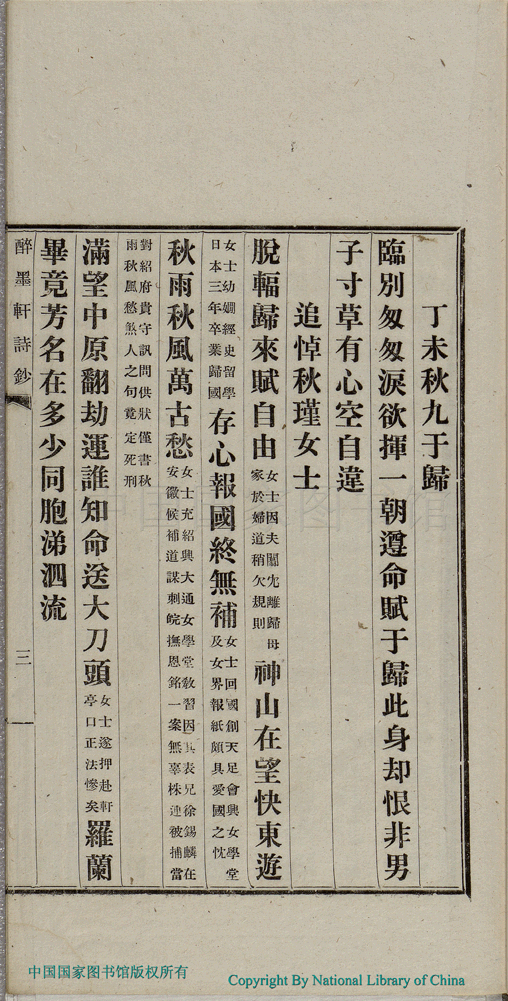 丁未秋九于歸
臨別匆匆淚欲揮一朝遵命賦于歸此身却恨非男
子寸草有心空自違
追悼秋瑾女士
脫輻歸來賦自由女士因夫闒冗離歸母家於婦道稍欠規則神山在望快東遊
女士幼嫻經史留學日本三年卒業歸國存心報國終無補女士回國創天足會興女學堂及女界報紙頗具愛國之忱
秋雨秋風萬古愁女士充紹興大通女學堂教習因其表兄徐錫麟在安徽候補道謀刺皖撫恩銘一案無辜株連被捕當
對紹府貴守訊問供狀僅書秋雨秋風愁煞人之句竟定死刑
滿望中原翻劫運誰知命送大刀頭女士遂押赴軒亭口正法慘矣羅蘭
畢竟芳名在多少同胞涕泗流
醉墨軒詩鈔
三
中国国家图书馆版权所有
Copyright By National Library of China